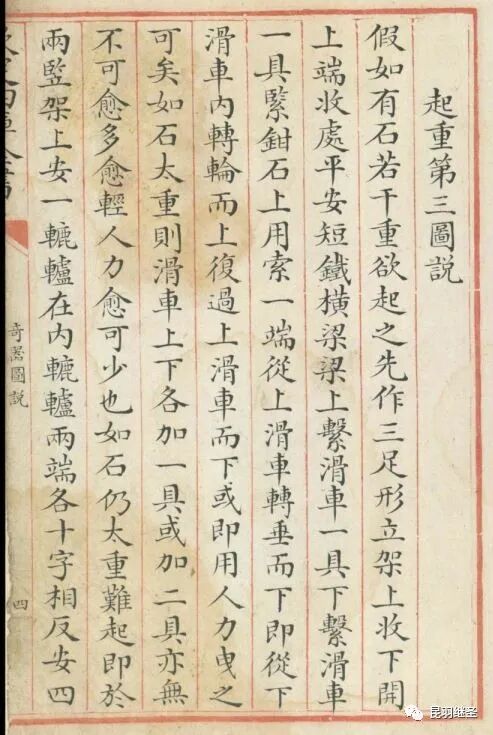 起重第三圖說
假如有石若干重欲起之先作三足形立架上收下開
上端收處平安短鐵橫梁梁上繫滑車一具下繫滑車
一具緊鉗石上用索一端從上滑車轉垂而下即從下
滑車内轉輪而上復過上滑車而下或即用人力曳之
可矣如石太重則滑車上下各加一具或加二具亦無
不可愈多愈輕人力愈可少也如石仍太重難起即於
兩竪架上安一轆轤在内轆轤兩端各十字相反安四
奇器圖說
四
昆羽继圣